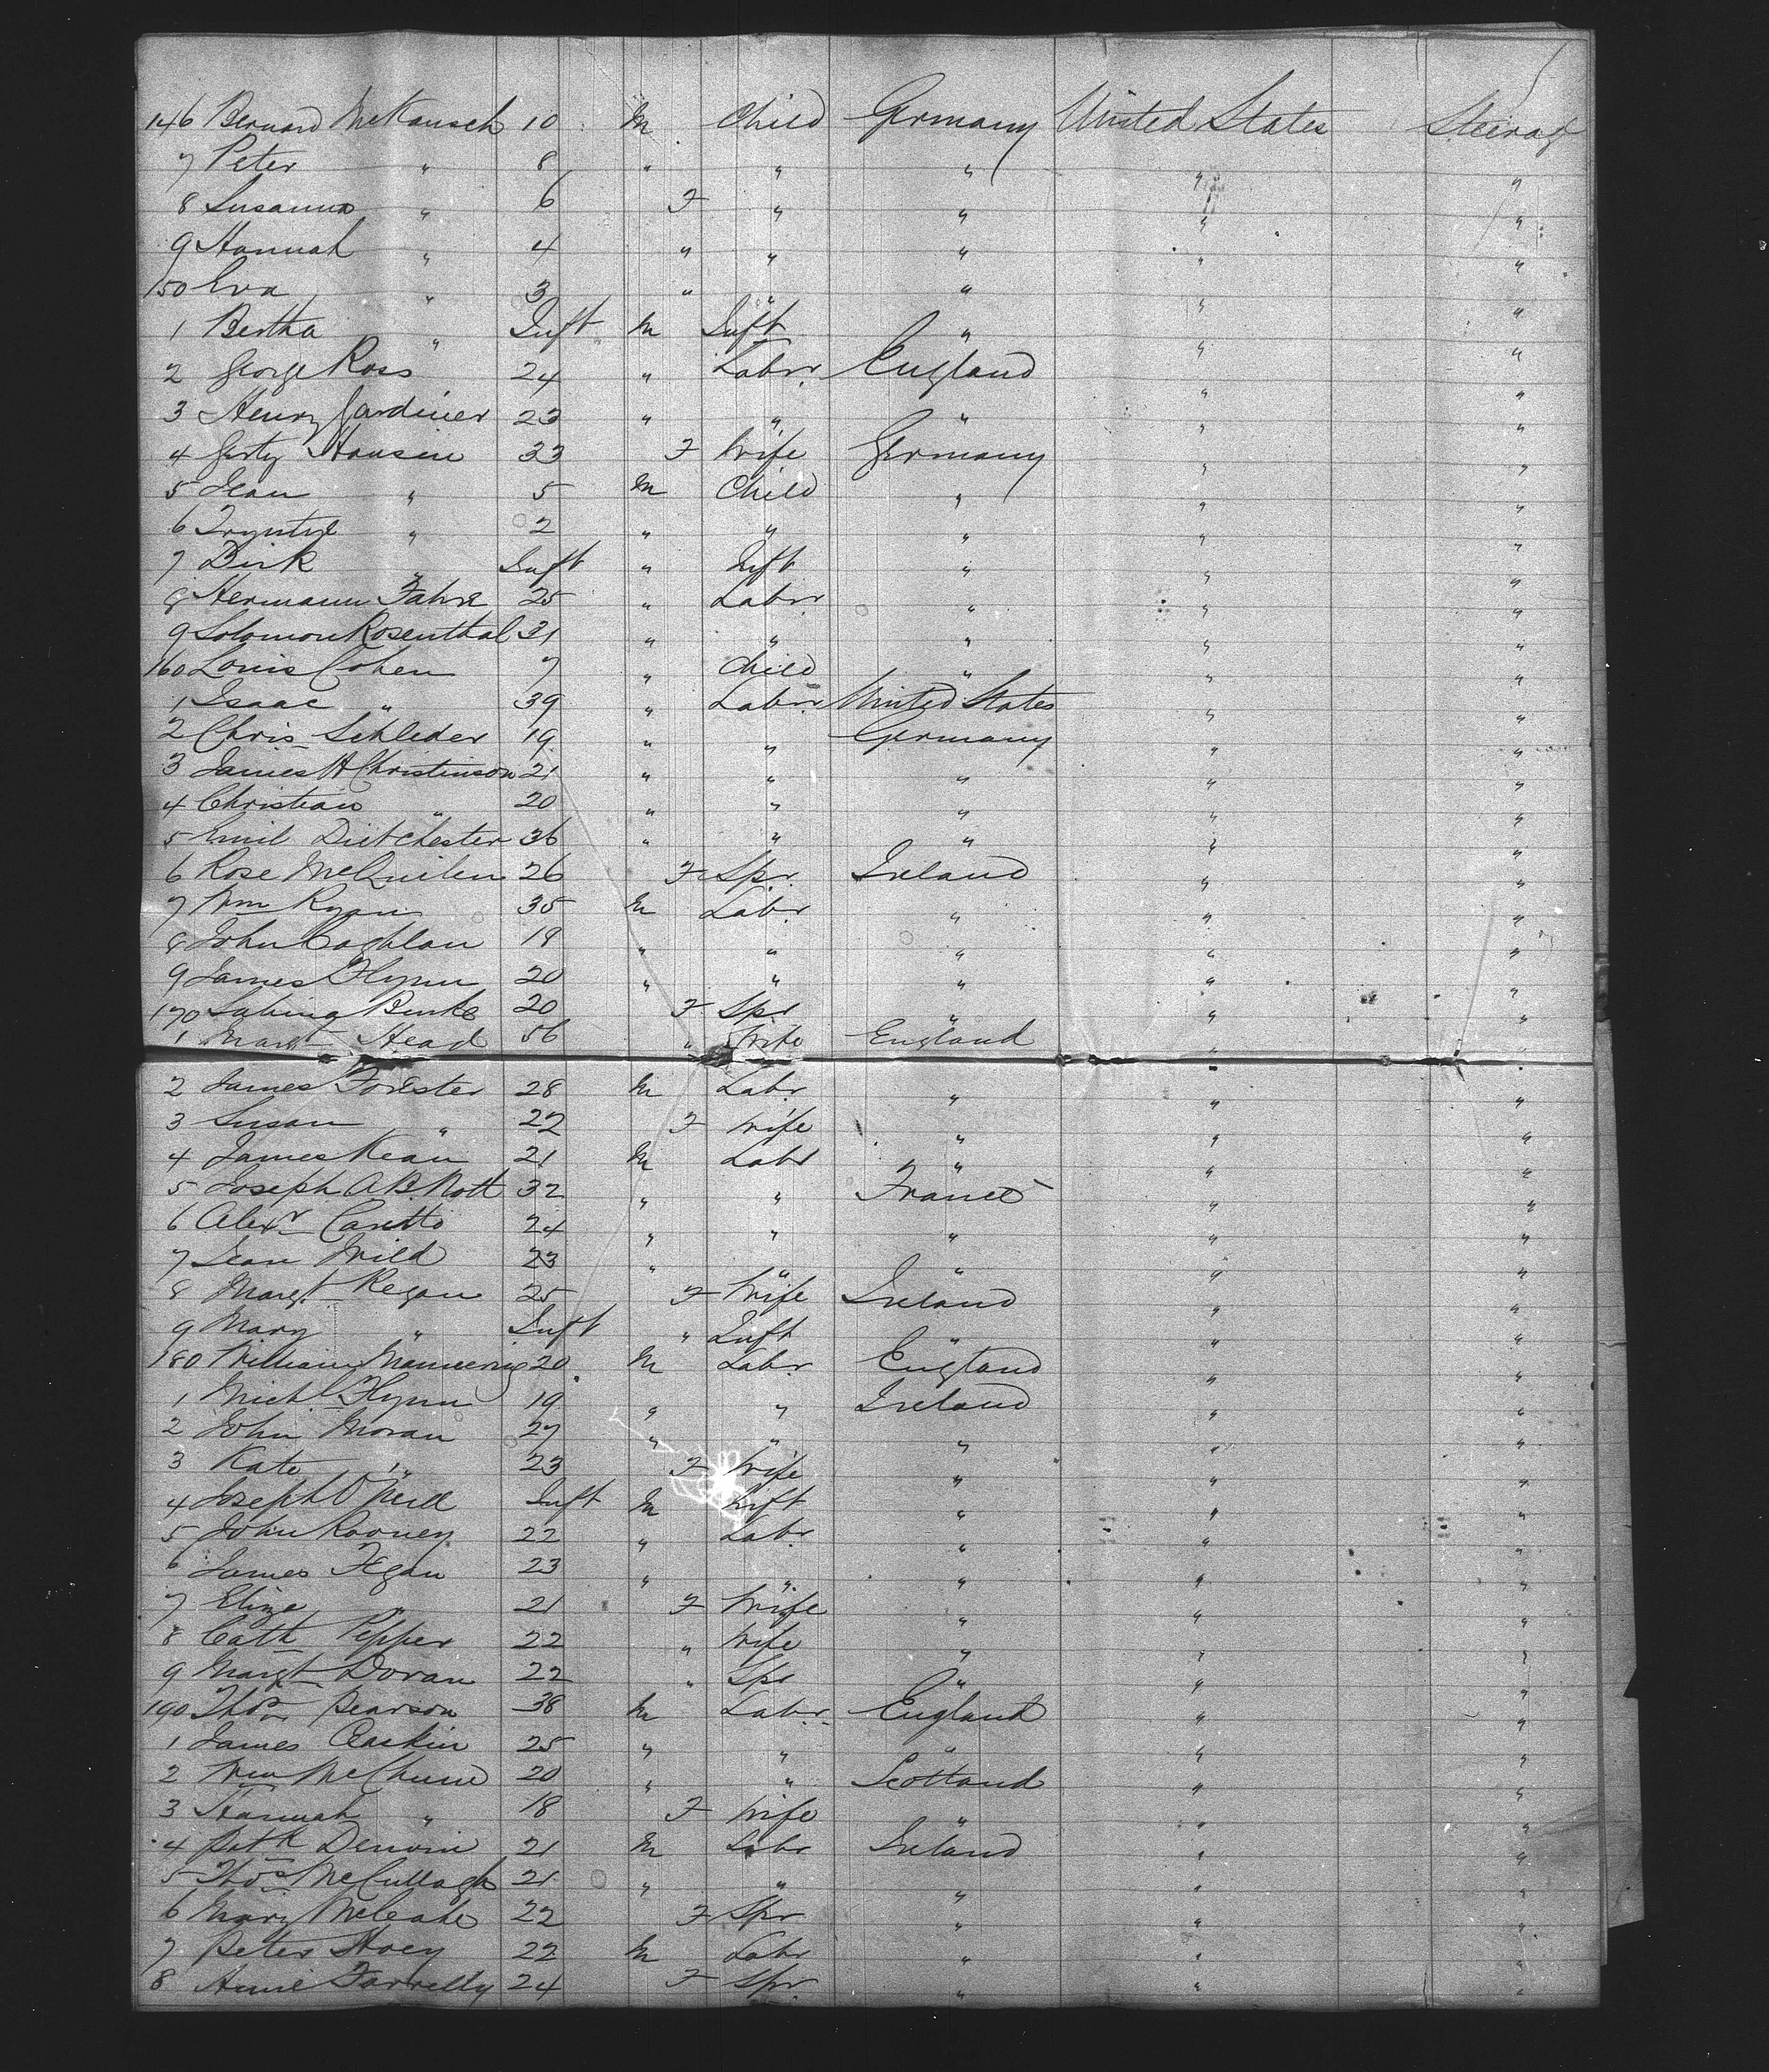 146 Bernard McKausch 10 M Child Germany United States Steerag
7 Peter " 8 " " " " "
8 Susanna " 6 F " " " "
9 Hannah " 4 " " " " "
150 Eva " 3 " " " " "
1 Bertha " Inft M Inft " " "
2 George Ross 24 " Labr England " "
3 Henry Gardiner 23 " " " " "
4 Gerty Hansen 33 F Wife Germany " "
5 Jean " 5 M Child " " "
6 Tryntje " 2 " " " " "
7 Dirk " Inft " Inft " " "
8 Hermann Fahse 25 " Labr " " "
9 Solomon Rosenthal 31 " " " " "
160 Louis Cohen 7 " Child " " "
1 Isaac " 39 " Labr United States " "
2 Chris Schleder 19 " " Germany " "
3 James H Christinson 21 " " " " "
4 Christian " 20 " " " " "
5 Emil Dietchester 36 " " " " "
6 Rose McQuilen 26 F Spr Ireland " "
7 Wm Ryan 35 M Labr " " "
8 John Coghlan 19 " " " " "
9 James Flynn 20 " " " " "
170 Sabina Burke 20 F Spr " " "
1 Margt Head 56 " Wife England " "
2 James Forester 28 M Labr " " "
3 Susan " 22 F Wife " " "
4 James Kean 21 M Labr " " "
5 Joseph A B Nott 32 " " France " "
6 Alexr Caretto 24 " " " " "
7 Jean Wild 23 " " " " "
8 Margt Regan 25 F Wife Ireland " "
9 Mary " Inft " Inft " " "
180 William Mannering 20 M Labr England " "
1 Michl Flynn 19 " " Ireland " "
2 John Moran 27 " " " " "
3 Kate " 23 F Wife " " "
4 Joseph O'Neill Inft M Inft " " "
5 John Rooney 22 " Labr " " "
6 James Fegan 23 " " " " "
7 Eliza " 21 F Wife " " "
8 Cath Pepper 22 " Wife " " "
9 Margt Doran 22 " Spr " " "
190 Thos Pearson 38 M Labr England " "
1 James Caskin 25 " " " " "
2 Wm McChune 20 " " Scotland " "
3 Hannah " 18 F Wife " " "
4 Patk Dervin 21 M Labr Ireland " "
5 Thos McCullagh 21 " " " " "
6 Mary McCabe 22 F Spr " " "
7 Peter Hoey 22 M Labr " " "
8 Annie Farrelly 24 F Spr " " "